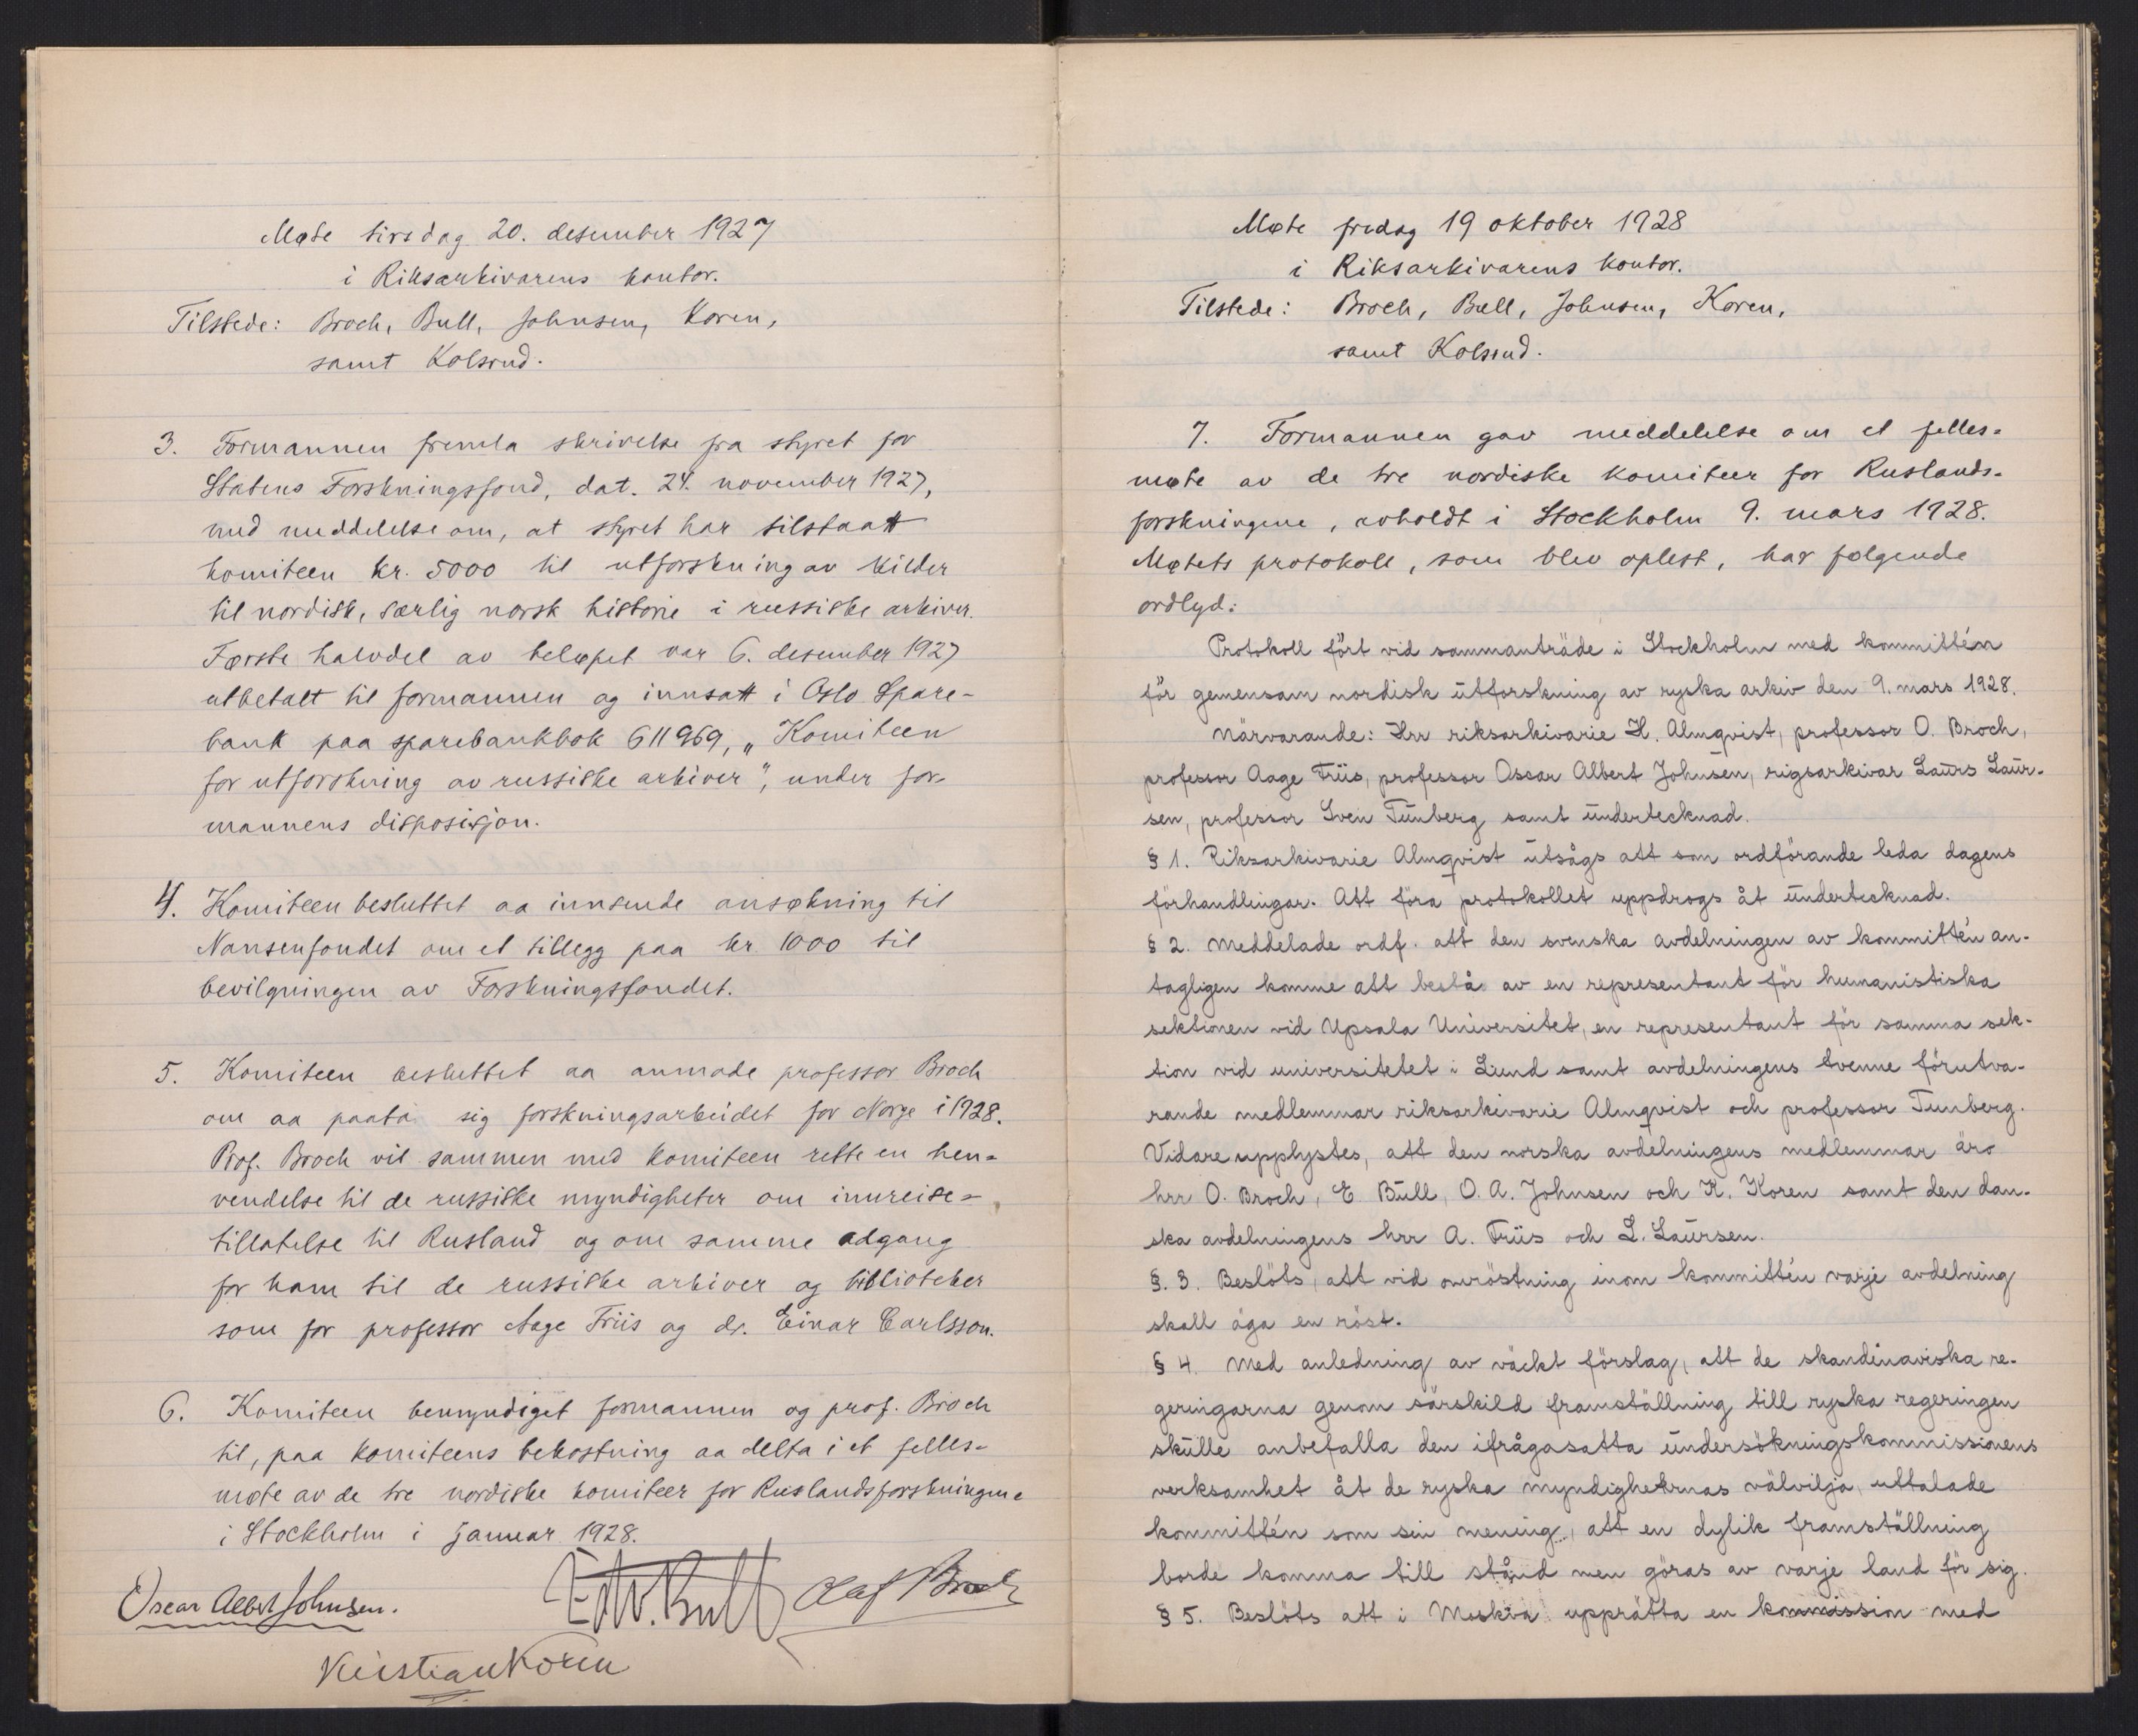 Møte tirsdag 20. desember 1927
i Riksarkivarens kontor.
Tilstede: Broch, Bull, Johnsen, Koren,
samt Kolsrud.
3. Formannen fremla skrivelse fra styret for
Statens Forskningsfond, dat. 24. november 1927,
med meddelelse om, at styret har tilstaatt
komiteen kr. 5000 til utforskning av kilder
til nordisk, særlig norsk historie i russiske arkiver.
Første halvdel av beløpet var 6. desember 1927
utbetalt til formannen og innsatt i Oslo Spare-
bank paa sparebankbok 611969, „Komiteen
for utforskning av russiske arkiver", under for-
mannens disposisjon.
4. Komiteen besluttet aa innsende ansøkning til
Nansenfondet om et tillegg paa kr. 1000 til
bevilgningen av Forskningsfondet.
5. Komiteen besluttet aa anmode professor Broch
om aa paata sig forskningsarbeidet for Norge i 1928.
Prof. Broch vil sammen med komiteen rette en hen-
vendelse til de russiske myndigheter om innreise-
tillatelse til Rusland og om samme adgang
for ham til de russiske arkiver og biblioteker
som for professor Aage Friis og dr. Einar Carlsson.
6. Komiteen bemyndiget formannen og prof. Broch
til, paa komiteens bekostning aa delta i et felles-
møte av de tre nordiske komiteer for Ruslandsforskningene
i Stockholm i januar 1928.
Oscar Albert Johnsen. Edv. Bull Olaf Broch
Kristian Koren
Møte fredag 19 oktober 1928
i Riksarkivarens kontor.
Tilstede: Broch, Bull, Johnsen, Koren,
samt Kolsrud.
7. Formannen gav meddelelse om et felles-
møte av de tre nordiske komiteer for Ruslands-
forskningene, avholdt i Stockholm 9. mars 1928.
Møtets protokoll, som blev oplest, har følgende
ordlyd:
Protokoll fört vid sammanträde i Stockholm med kommittén
för gemensam nordisk utforskning av ryska arkiv den 9. mars 1928.
Närvarande: Hrr riksarkivarie H. Almqvist, professor O. Broch,
professor Aage Friis, professor Oscar Albert Johnsen, rigsarkivar Laurs Laur-
sen, professor Sven Tunberg samt undertecknad.
§ 1. Riksarkivarie Almqvist utsågs att som ordförande leda dagens
förhandlingar. Att föra protokollet uppdrogs åt undertecknad.
§ 2. Meddelade ordf. att den svenska avdelningen av kommittén an-
tagligen komme att bestå av en representant för humanistiska
sektionen vid Upsala Universitet, en representant för samma sek-
tion vid universitetet i Lund samt avdelningens tvenne förutva-
rande medlemmar riksarkivarie Almqvist och professor Tunberg.
Vidare upplystes, att den norska avdelningens medlemmar äro
hrr O. Broch, E Bull, O. A. Johnsen och K. Koren samt den dan-
ska avdelningens hrr A. Friis och L. Laursen.
§. 3. Beslöts, att vid omröstning inom kommittén varje avdelning
skall äga en röst.
§ 4. Med anledning av väckt förslag, att de skandinaviska re-
geringarna genom särskild framställning till ryska regeringen
skulle anbefalla den ifrågasatta undersökningskommissionens
verksamhet åt de ryska myndigheternas välvilja, uttalade
kommittén som sin mening, att en dylik framställning
borde komma till stånd men göras av varje land för sig.
§ 5. Beslöts att i Moskva upprätta en kommission med